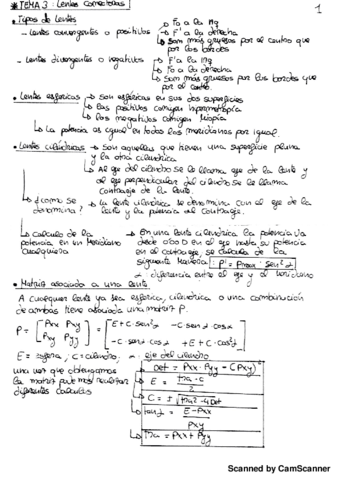 * TEMA 3: Lentes correctoras
1
• Tipos de lentes
- Lentes convergentes o positivos
Fo a la izq
F' a la derecha
Son más gruesos por el centro que
por los bordes
- Lentes divergentes o negativos
F' a la izq
Fo a la derecha
Son más gruesos por los bordes que
por el centro.
• Lentes esféricas
Son esféricas en sus dos superficies
Las positivas corrigen hipermetropía
Los negativos corrigen miopía
La potencia es igual en todos los meridianos por igual.
• Lentes cilíndricas
Son aquellas que tienen una superficie plana
y la otra cilíndrica
Al eje del cilindro se le llama eje de la lente y
al eje perpendicular del cilindro se le llama
contraeje de la lente.
¿Cómo se
denomina?
La lente cilíndrica se denomina con el eje de la
lente y la potencia del contraeje.
Calculo de la
potencia en un meridiano
cualquiera
En una lente cilíndrica la potencia va
desde 0'00D en el eje hasta su potencia
en el contraeje, se calcula de la
siguiente manera: P = Pmax · sen² α
α diferencia entre el eje y el meridiano
• Matriz asociada a una lente
A cualquier lente ya sea esférica, cilíndrica o una combinación
de ambas tiene asociada una matriz P.
P = [Pxx Pxy] = [E + C·sen²α -C·senα·cosα]
[Pxy Pyy] [-C·senα·cosα +E + C·cos²α]
E = esfera, C = cilindro, α = eje del cilindro
una vez que obtengamos
la matriz podemos realizar
diferentes calculos
Det = Pxx · Pyy - (Pxy)²
E = tra - c / 2
C = ± √tra² - 4Det
tan α = E - Pxx / Pxy
Tra = Pxx + Pyy
Scanned by CamScanner